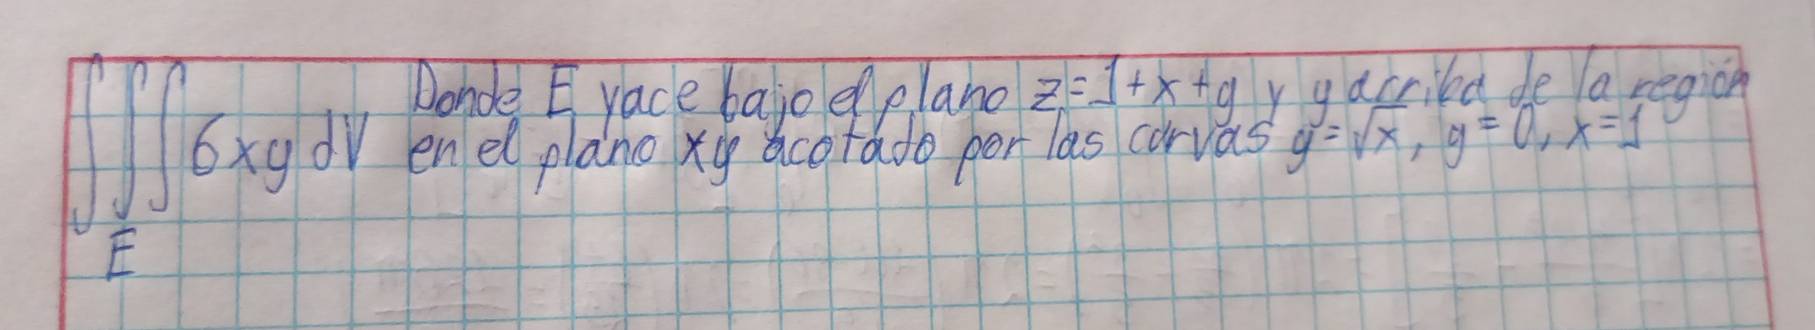 ∫∫∫ 6xy dV Donde E yace bajo el plano z=1+x+y y y arriba de la región
E en el plano xy acotado por las curvas y=√x, y=0, x=1